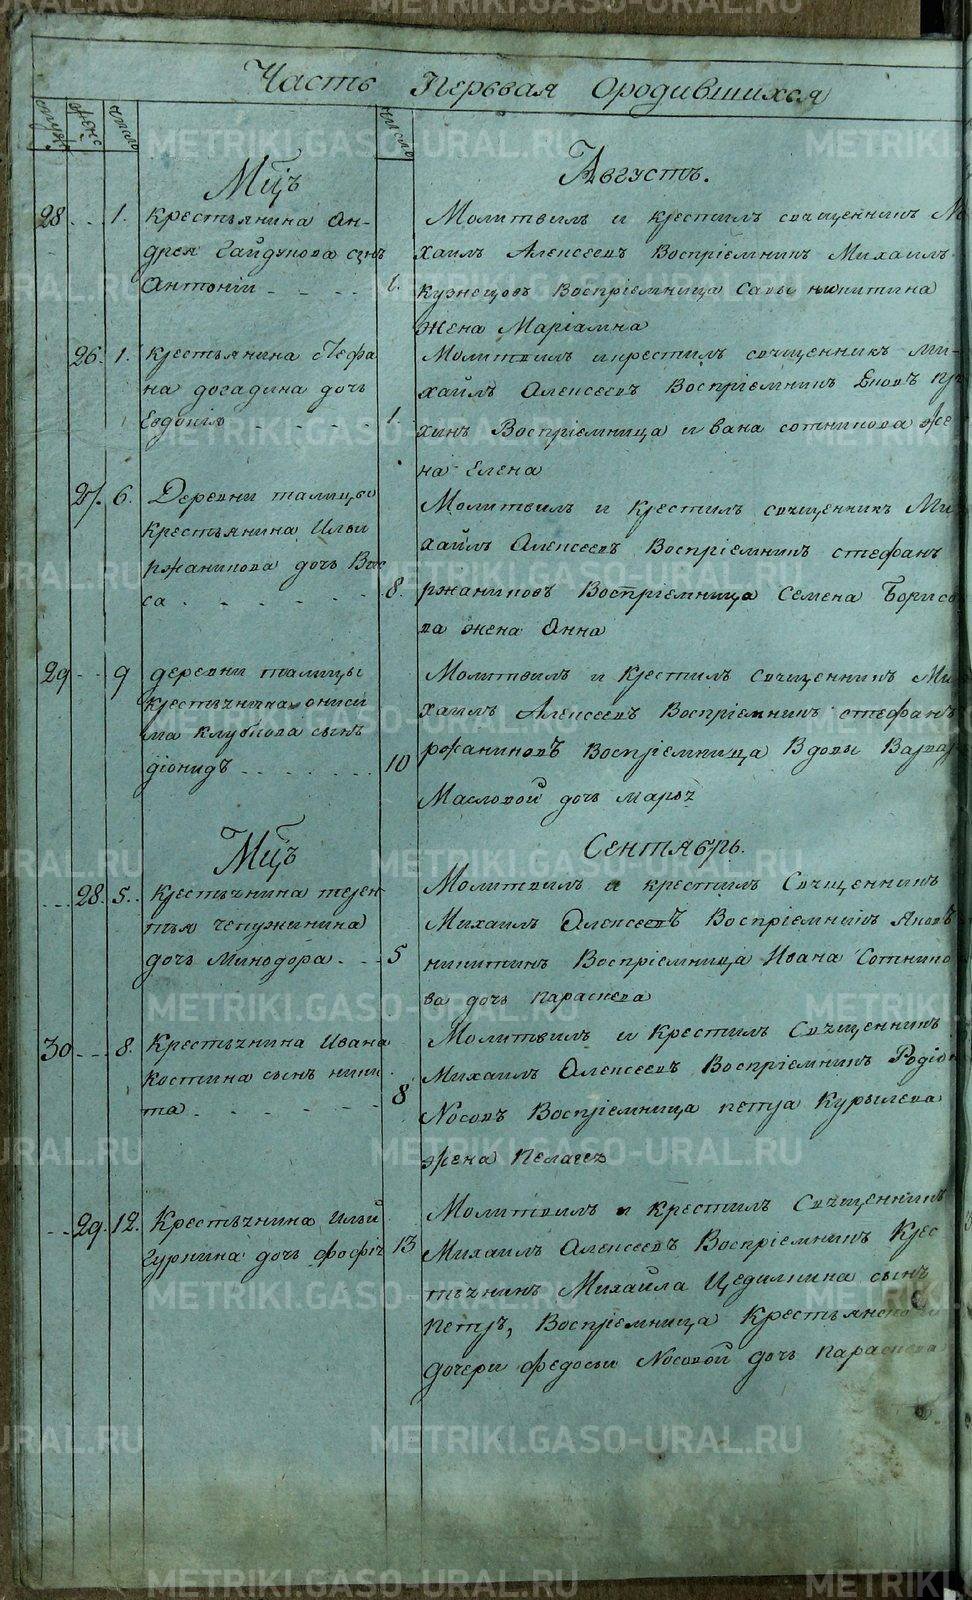 Часть Первая Ородившихся
мужс
женс
число
число
Мцъ
Августъ.
28 1. крестьянина Ан-
дрея Гайдукова сынъ
Антоній 1.
Молитвилъ и крестилъ священникъ Ми
хаилъ Алексеевъ Воспріемникъ Михаилъ
кузнецовъ Воспріемница Савы никитина
жена Маріамна
26. 1. крестьянина стефа
на догадина дочь
Евдокія 1.
Молитвилъ и крестилъ священникъ Ми-
хаилъ Алексеевъ Воспріемникъ Яковъ
хинъ Воспріемница ивана сотникова же
на Елена
27. 6. Деревни талицы
крестьянина Ильи
ржаникова дочь Вас
са 8.
Молитвилъ и крестилъ священникъ Ми
хаилъ Алексеевъ Воспріемникъ стефанъ
ржаниковъ Воспріемница Семена Борисо
ва жена Анна
29 9 деревни талицы
крестьянина ониси
ма клубкова сынъ
діонидъ 10
Молитвилъ и крестилъ священникъ Ми
хаилъ Алексеевъ Воспріемникъ стефанъ
ржаниковъ Воспріемница Вдовы Варвар
Масловой дочь марья
Мцъ
Сентябрь.
28. 5. крестьянина терен-
тья чепужинина
дочь Минодора 5
Молитвилъ и крестилъ Священникъ
Михаилъ Алексеевъ Воспріемникъ Яковъ
никитинъ Воспріемница Ивана Сотнико
ва дочь параскева
30 8. Крестьянина Ивана
костина сынъ ники
та 8
Молитвилъ и крестилъ Священникъ
Михаилъ Алексеевъ Воспріемникъ Родіон
Носовъ Воспріемница петра Курылева
жена Пелагея
29. 12. Крестьянина Ильи
гуркина дочь 13
Молитвилъ и крестилъ Священникъ
Михаилъ Алексеевъ Воспріемникъ Крес
тьянинъ Михайла Цедилкина сынъ
петръ, Воспріемница Крестьянской
дочери федосьи Носовой дочь параскева
METRIKI.GASO-URAL.RU